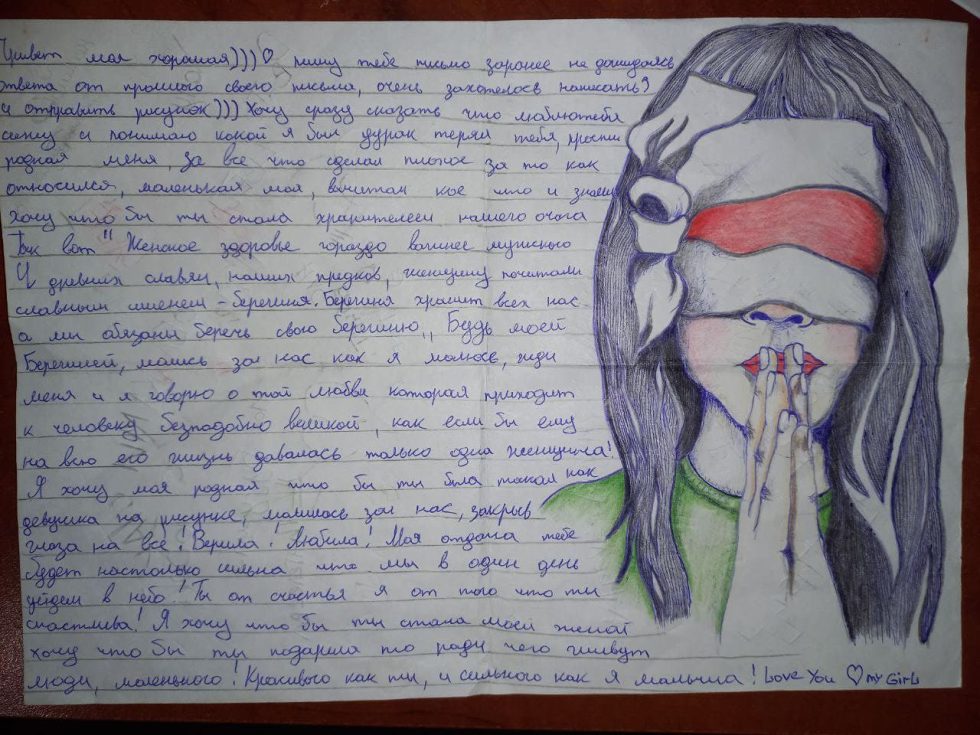 Привет моя хорошая))) ♡ пишу тебе письмо заранее не дождавшись
ответа от прошлого своего письма, очень захотелось написать?
и отправить рисунок))) Хочу сразу сказать что люблю тебя
сижу и понимаю какой я был дурак теряя тебя, прости
родная меня, за все что сделал плохое за то как
относился, маленькая моя, вычитал кое что и знаешь
хочу что бы ты стала хранителем нашего очага
Так вот "Женское здоровье гораздо важнее мужского
У древних славян, наших предков, женщину почитали
славным именем - берегиня. Берегиня хранит всех нас
а мы обязаны беречь свою берегиню,, Будь моей
Берегиней, молись за нас как я молюсь, жди
меня и я говорю о той любви которая приходит
к человеку безподобно великой, как если бы ему
на всю его жизнь давалась только одна женщина!
Я хочу моя родная что бы ты была такой как
девушка на рисунке, молилась за нас, закрыв
глаза на все! Верила! Любила! Моя отдача тебе
будет настолько сильна что мы в один день
уйдем в небо! Ты от счастья я от того что ты
счастлива! Я хочу что бы ты стала моей женой
хочу что бы ты подарила то ради чего живут
люди, маленького! Красивого как ты, и сильного как я мальчиша! Love You ♡ my Girl